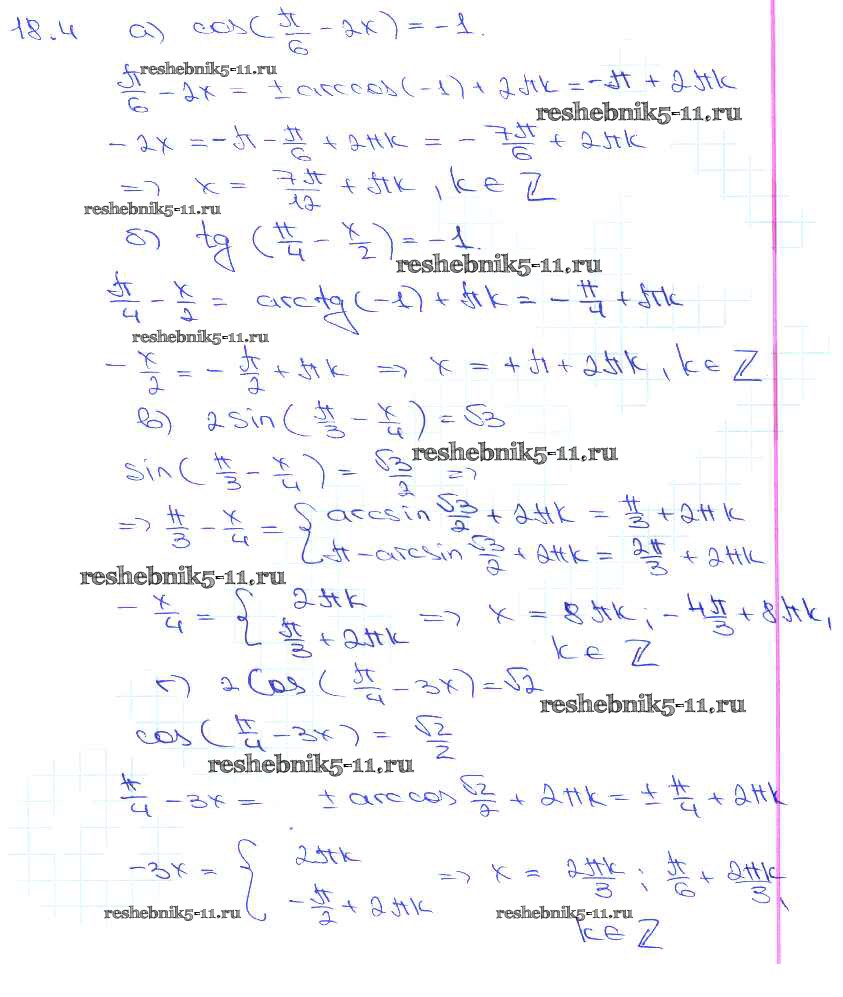 18.4 а) cos(π/6 - 2x) = -1.
reshebnik5-11.ru
π/6 - 2x = ± arccos(-1) + 2πk = -π + 2πk
reshebnik5-11.ru
-2x = -π - π/6 + 2πk = - 7π/6 + 2πk
=> x = 7π/12 + πk, k ∈ ℤ
reshebnik5-11.ru
б) tg(π/4 - x/2) = -1.
reshebnik5-11.ru
π/4 - x/2 = arctg(-1) + πk = - π/4 + πk
reshebnik5-11.ru
- x/2 = - π/2 + πk => x = +π + 2πk, k ∈ ℤ
в) 2sin(π/3 - x/4) = √3
reshebnik5-11.ru
sin(π/3 - x/4) = √3/2 =>
=> π/3 - x/4 = { arcsin √3/2 + 2πk = π/3 + 2πk
π - arcsin √3/2 + 2πk = 2π/3 + 2πk
reshebnik5-11.ru
- x/4 = { 2πk
π/3 + 2πk => x = 8πk; - 4π/3 + 8πk,
k ∈ ℤ
г) 2cos(π/4 - 3x) = √2
reshebnik5-11.ru
cos(π/4 - 3x) = √2/2
reshebnik5-11.ru
π/4 - 3x = ± arccos √2/2 + 2πk = ± π/4 + 2πk
-3x = { 2πk
- π/2 + 2πk => x = 2πk/3; π/6 + 2πk/3,
reshebnik5-11.ru
reshebnik5-11.ru
k ∈ ℤ